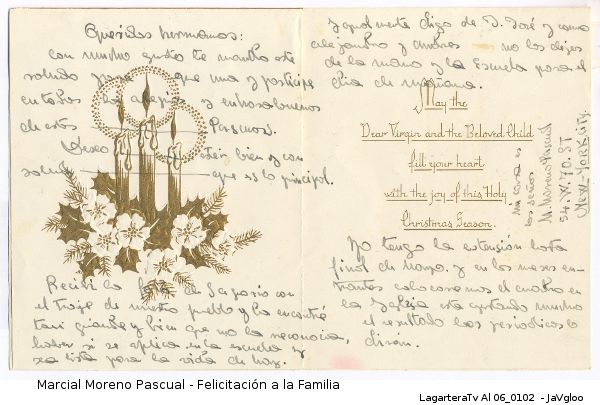 Queridos hermanos:
con mucho gusto te mando este
saludo para que una y participe
en todas las alegrias y enhorabuenas
de estas Pascuas.
Deseo esteis bien y con
salud que es lo principal.
Recibi la foto de Gregorio con
el traje de nuestro pueblo y la encontré
tan grande y bien que no la reconocia,
haber si se aplica en la escuela y
sea lista para la vida de hoy.
Igualmente digo de D. José y como
alejandro y andres no los dejes
de la mano y la Escuela para el
dia de mañana.
May the
Dear Virgin and the Beloved Child
fill your heart
with the joy of this Holy
Christmas Season.
No tengo la extensión hasta
final de mayo. y en los meses en-
trantes colocaremos el cuadro en
la Iglesia esta gustando mucho
el resultado los periodicos lo
diran.
Mi casa es
las señas
M. Moreno Pascual
54. W. 70. ST
NEW-YORK City.
Marcial Moreno Pascual - Felicitación a la Familia
LagarteraTv Al 06_0102 - JaVgloo